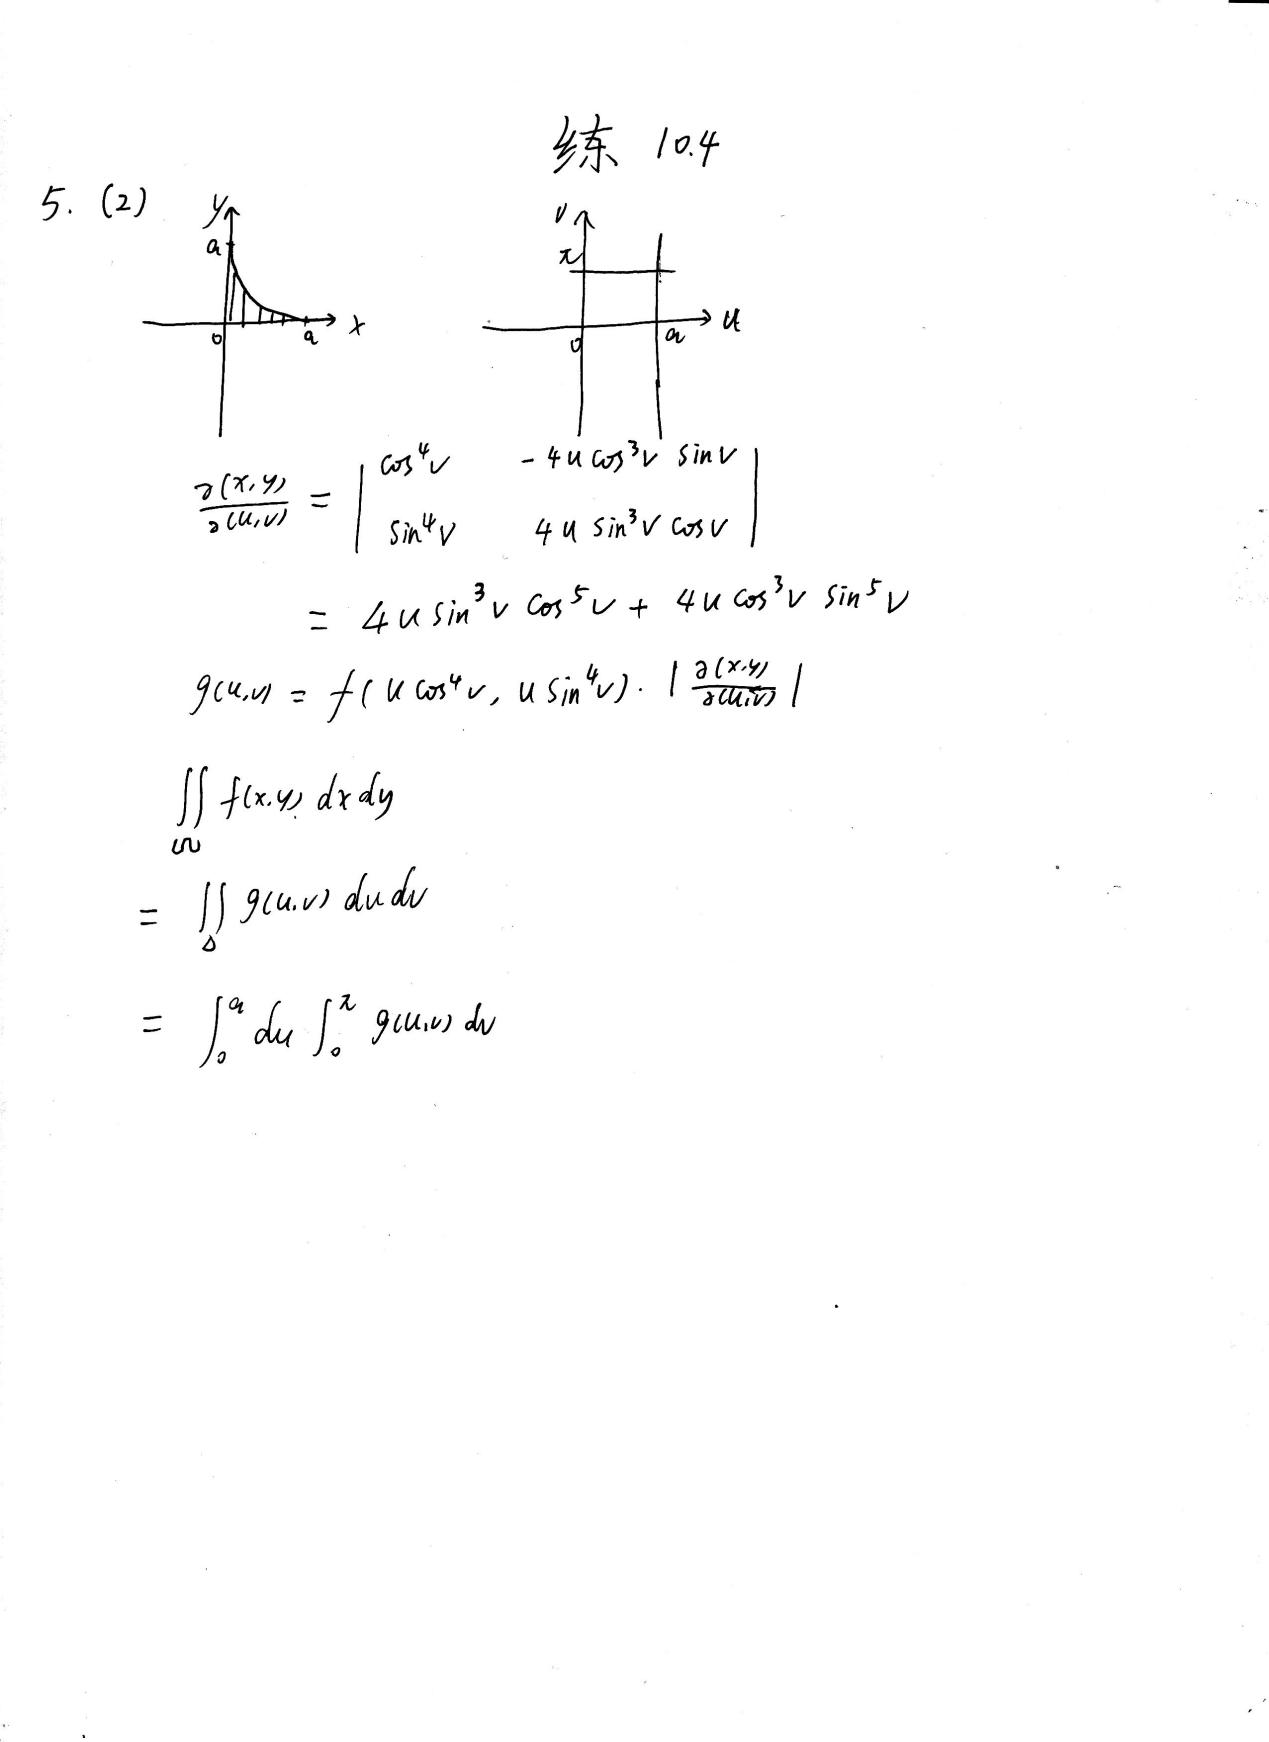 练 10.4
5. (2)
y a 0 a x
v π 0 a u
∂(x,y)/∂(u,v) = | cos⁴v  -4u cos³v sinv |
| sin⁴v  4u sin³v cosv |
= 4u sin³v cos⁵v + 4u cos³v sin⁵v
g(u,v) = f(u cos⁴v, u sin⁴v)·|∂(x,y)/∂(u,v)|
∬_Ω f(x,y) dxdy
= ∬_Δ g(u,v) dudv
= ∫₀ᵃ du ∫₀^π g(u,v) dv